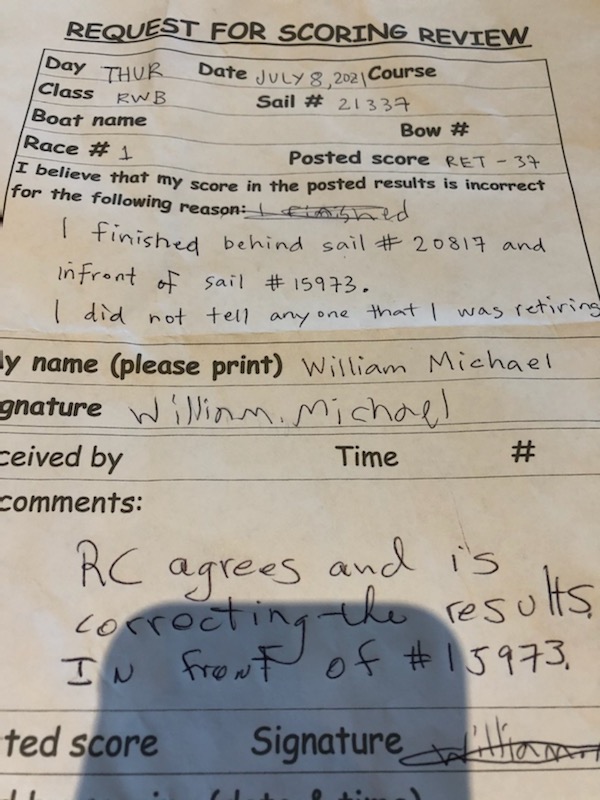 REQUEST FOR SCORING REVIEW
Day THUR Date JULY 8, 2021 Course
Class RWB Sail # 21337
Boat name Bow #
Race # 1 Posted score RET - 37
I believe that my score in the posted results is incorrect
for the following reason: I finished
I finished behind sail # 20817 and
infront of sail #15973.
I did not tell anyone that I was retiring
y name (please print) William Michael
gnature William. Michael
ceived by Time #
comments:
RC agrees and is
correcting the results.
IN fronT of #15973.
ted score Signature William.